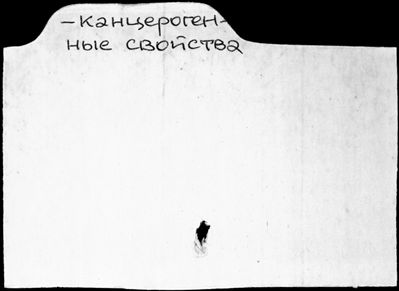 –Канцероген-
ные свойства